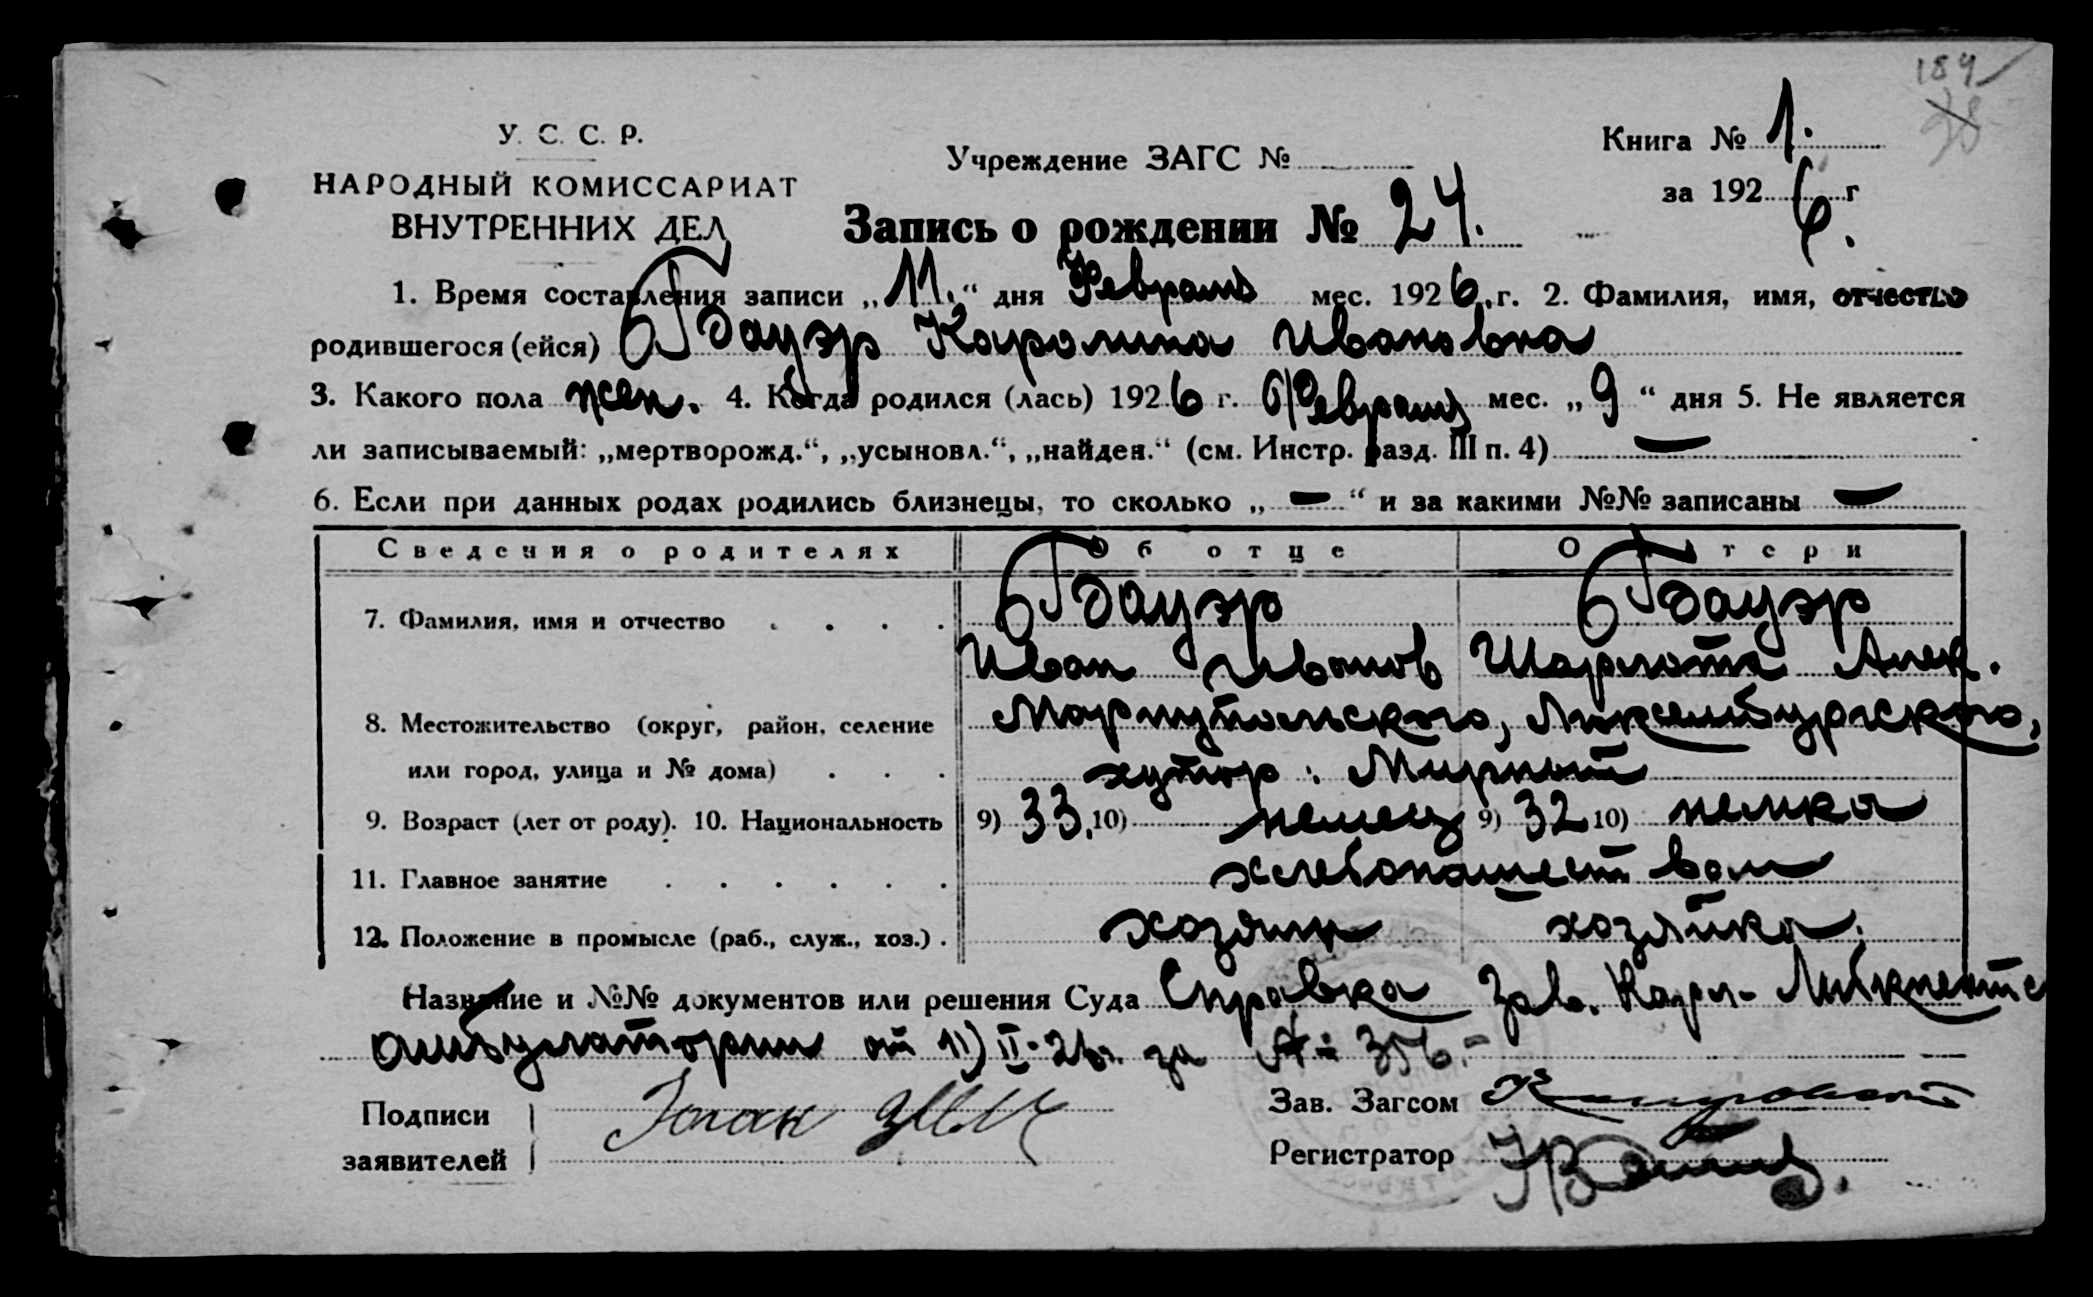 184
38
У. С. С. Р.
НАРОДНЫЙ КОМИССАРИАТ
ВНУТРЕННИХ ДЕЛ
Учреждение ЗАГС №
Книга № 1.
за 1926 г.
Запись о рождении № 24.
1. Время составления записи „11.“ дня Февраля мес. 1926, г. 2. Фамилия, имя, отчество
родившегося (ейся) Бауэр Каролина Ивановна
3. Какого пола жен. 4. Когда родился (лась) 1926 г. Февраля мес. „9“ дня 5. Не является
ли записываемый: „мертворожд.“, „усыновл.“, „найден.“ (см. Инстр. разд. III п. 4) —
6. Если при данных родах родились близнецы, то сколько „—“ и за какими №№ записаны —
Сведения о родителях Об отце О матери
7. Фамилия, имя и отчество . . . . Бауэр Бауэр
Иван Иванов Шарлота Алек.
8. Местожительство (округ, район, селение Мариупольского, Люксембургского,
или город, улица и № дома) . . . хутор: Мирный
9. Возраст (лет от роду). 10. Национальность 9) 33. 10) немец 9) 32 10) немка
11. Главное занятие . . . . . . хлебопашеством
12. Положение в промысле (раб., служ., хоз.) . хозяин хозяйка.
Название и №№ документов или решения Суда Справка Зав. Карл-Либкнехтс
амбулатории от 11) II-26 г. за №: 356.-
Подписи
заявителей
Зав. Загсом
Регистратор